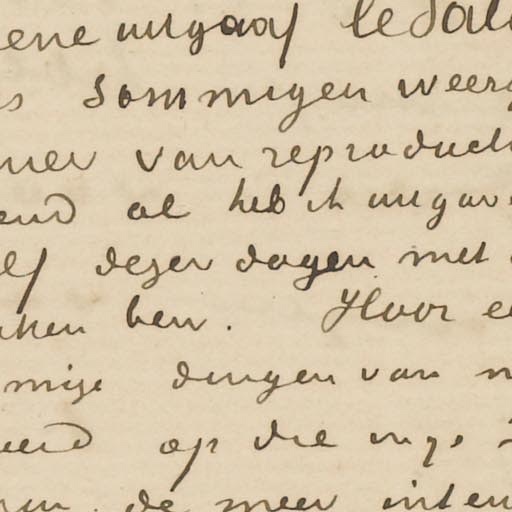 ene uitgaaf le Sal
s sommigen weer
mer van reproducti
end al heb ik uitgav
elf dezer dagen met
ken ben. Hoor e
mijn dingen van
eerd op die wijs
de meer inten